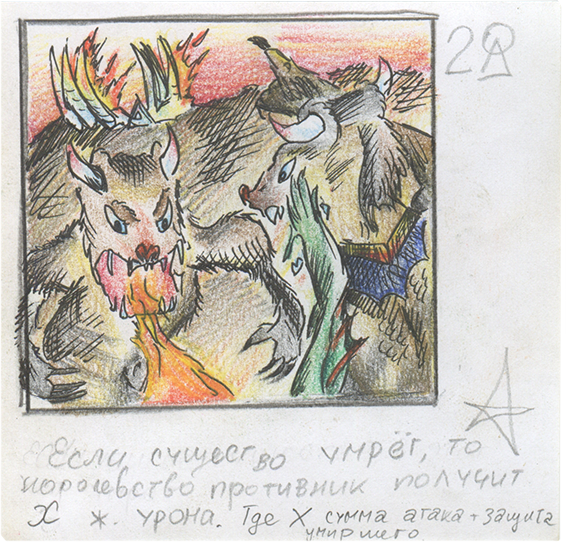 2
Если существо умрёт, то
королевство противник получит
X ж. урона. Где X сумма атака + защита
умиршего